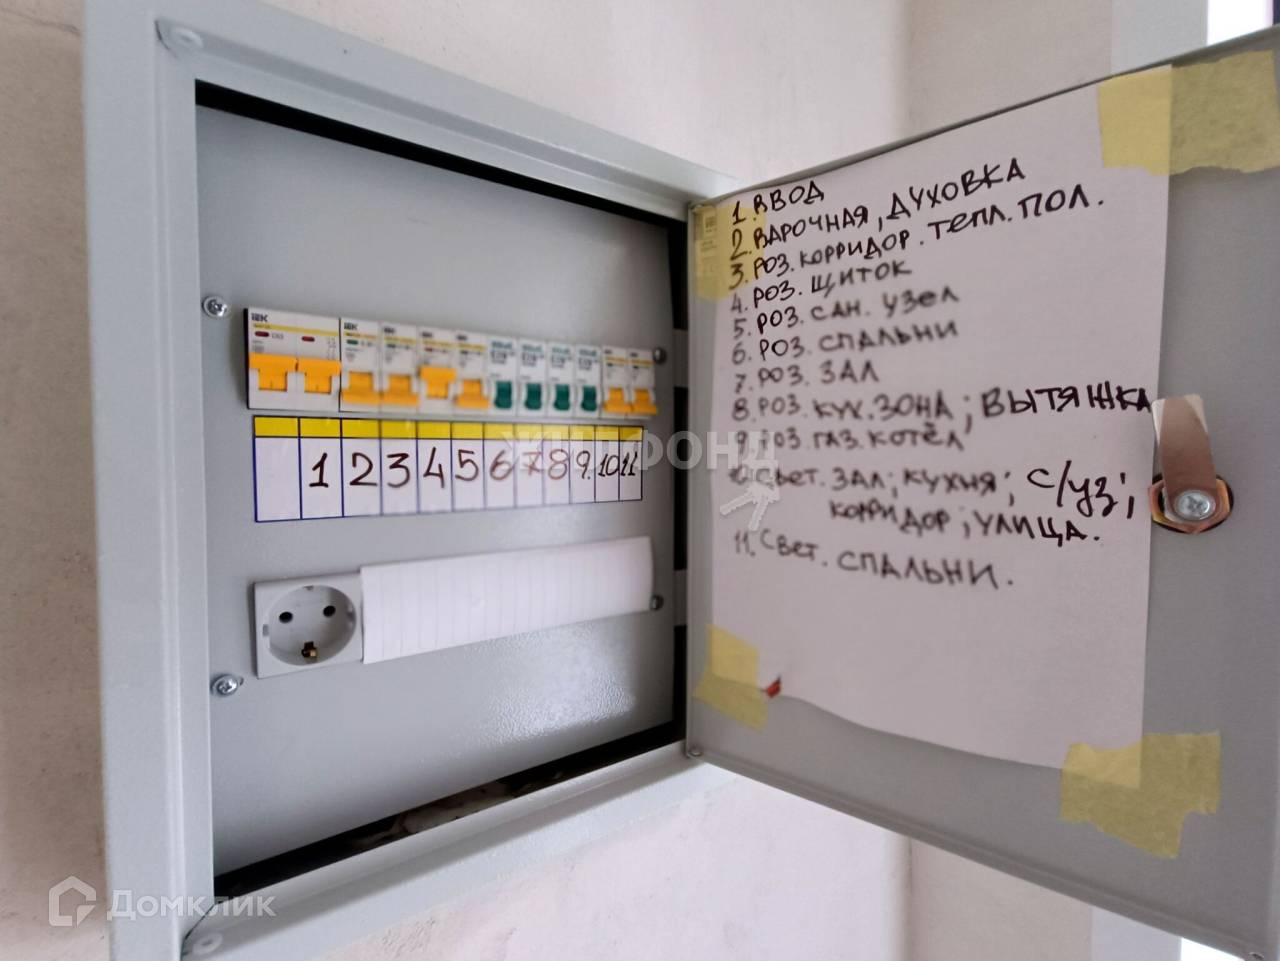 1. ВВОД
2. ВАРОЧНАЯ, ДУХОВКА
3. РОЗ. КОРРИДОР. ТЕПЛ. ПОЛ.
4. РОЗ. ЩИТОК
5. РОЗ. САН. УЗЕЛ
6. РОЗ. СПАЛЬНИ
7. РОЗ. ЗАЛ
8. РОЗ. КУХ. ЗОНА; ВЫТЯЖКА
9. РОЗ. ГАЗ. КОТЁЛ
10. Свет. ЗАЛ; КУХНЯ; С/УЗ;
КОРРИДОР; УЛИЦА.
11. Свет. СПАЛЬНИ.
IEK IEK
1 2 3 4 5 6 7 8 9. 10 11
ЖИЛФОНД
Домклик